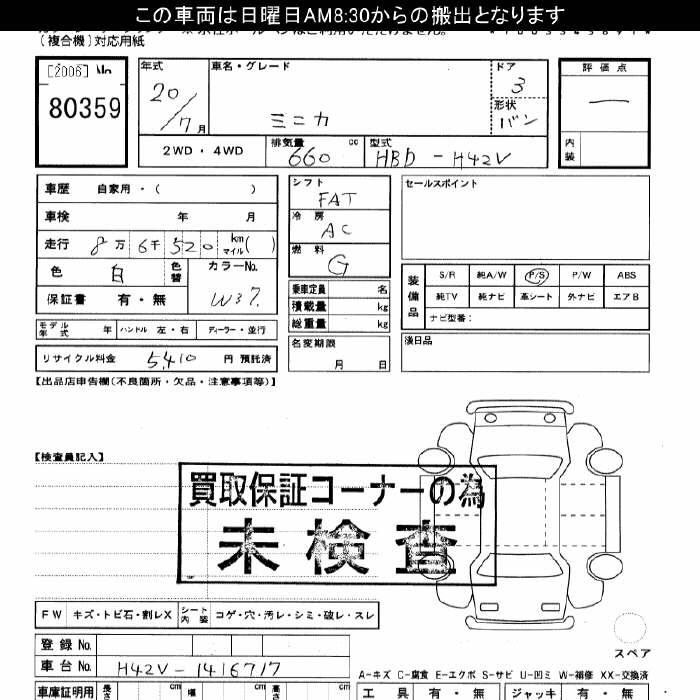 この車両は日曜日AM8:30からの搬出となります
(複合機)対応用紙
[2006] No
80359
年式 車名・グレード ドア 評価点
20/7月 ミニカ 3 —
形状
バン
2WD・4WD 排気量 660 cc 型式 HBD-H42V 内装
車歴 自家用・( )
車検 年 月
走行 8万6千520 km マイル( )
色 白 色替 カラーNo. W37.
保証書 有・無
モデル年式 年 ハンドル 左・右 ディーラー・並行
リサイクル料金 5,410 円 預託済
シフト FAT
冷房 AC
燃料 G
乗車定員 名
積載量 kg
総重量 kg
名変期限 月 日
セールスポイント
装備品 S/R 純A/W P/S P/W ABS
純TV 純ナビ 革シート 外ナビ エアB
ナビ型番:
瑛日品
【出品店申告欄(不良箇所・欠品・注意事項等)】
【検査員記入】
買取保証コーナーの為
未検査
FW キズ・トビ石・割レX シート内装 コゲ・穴・汚レ・シミ・破レ・スレ
スペア
登録No.
車台No. H42V-1416717
A-キズ C-腐食 E-エクボ S-サビ U-凹ミ W-補修 XX-交換済
車庫証明用 長さ cm 幅 cm 高さ cm
工具 有・無 ジャッキ 有・無